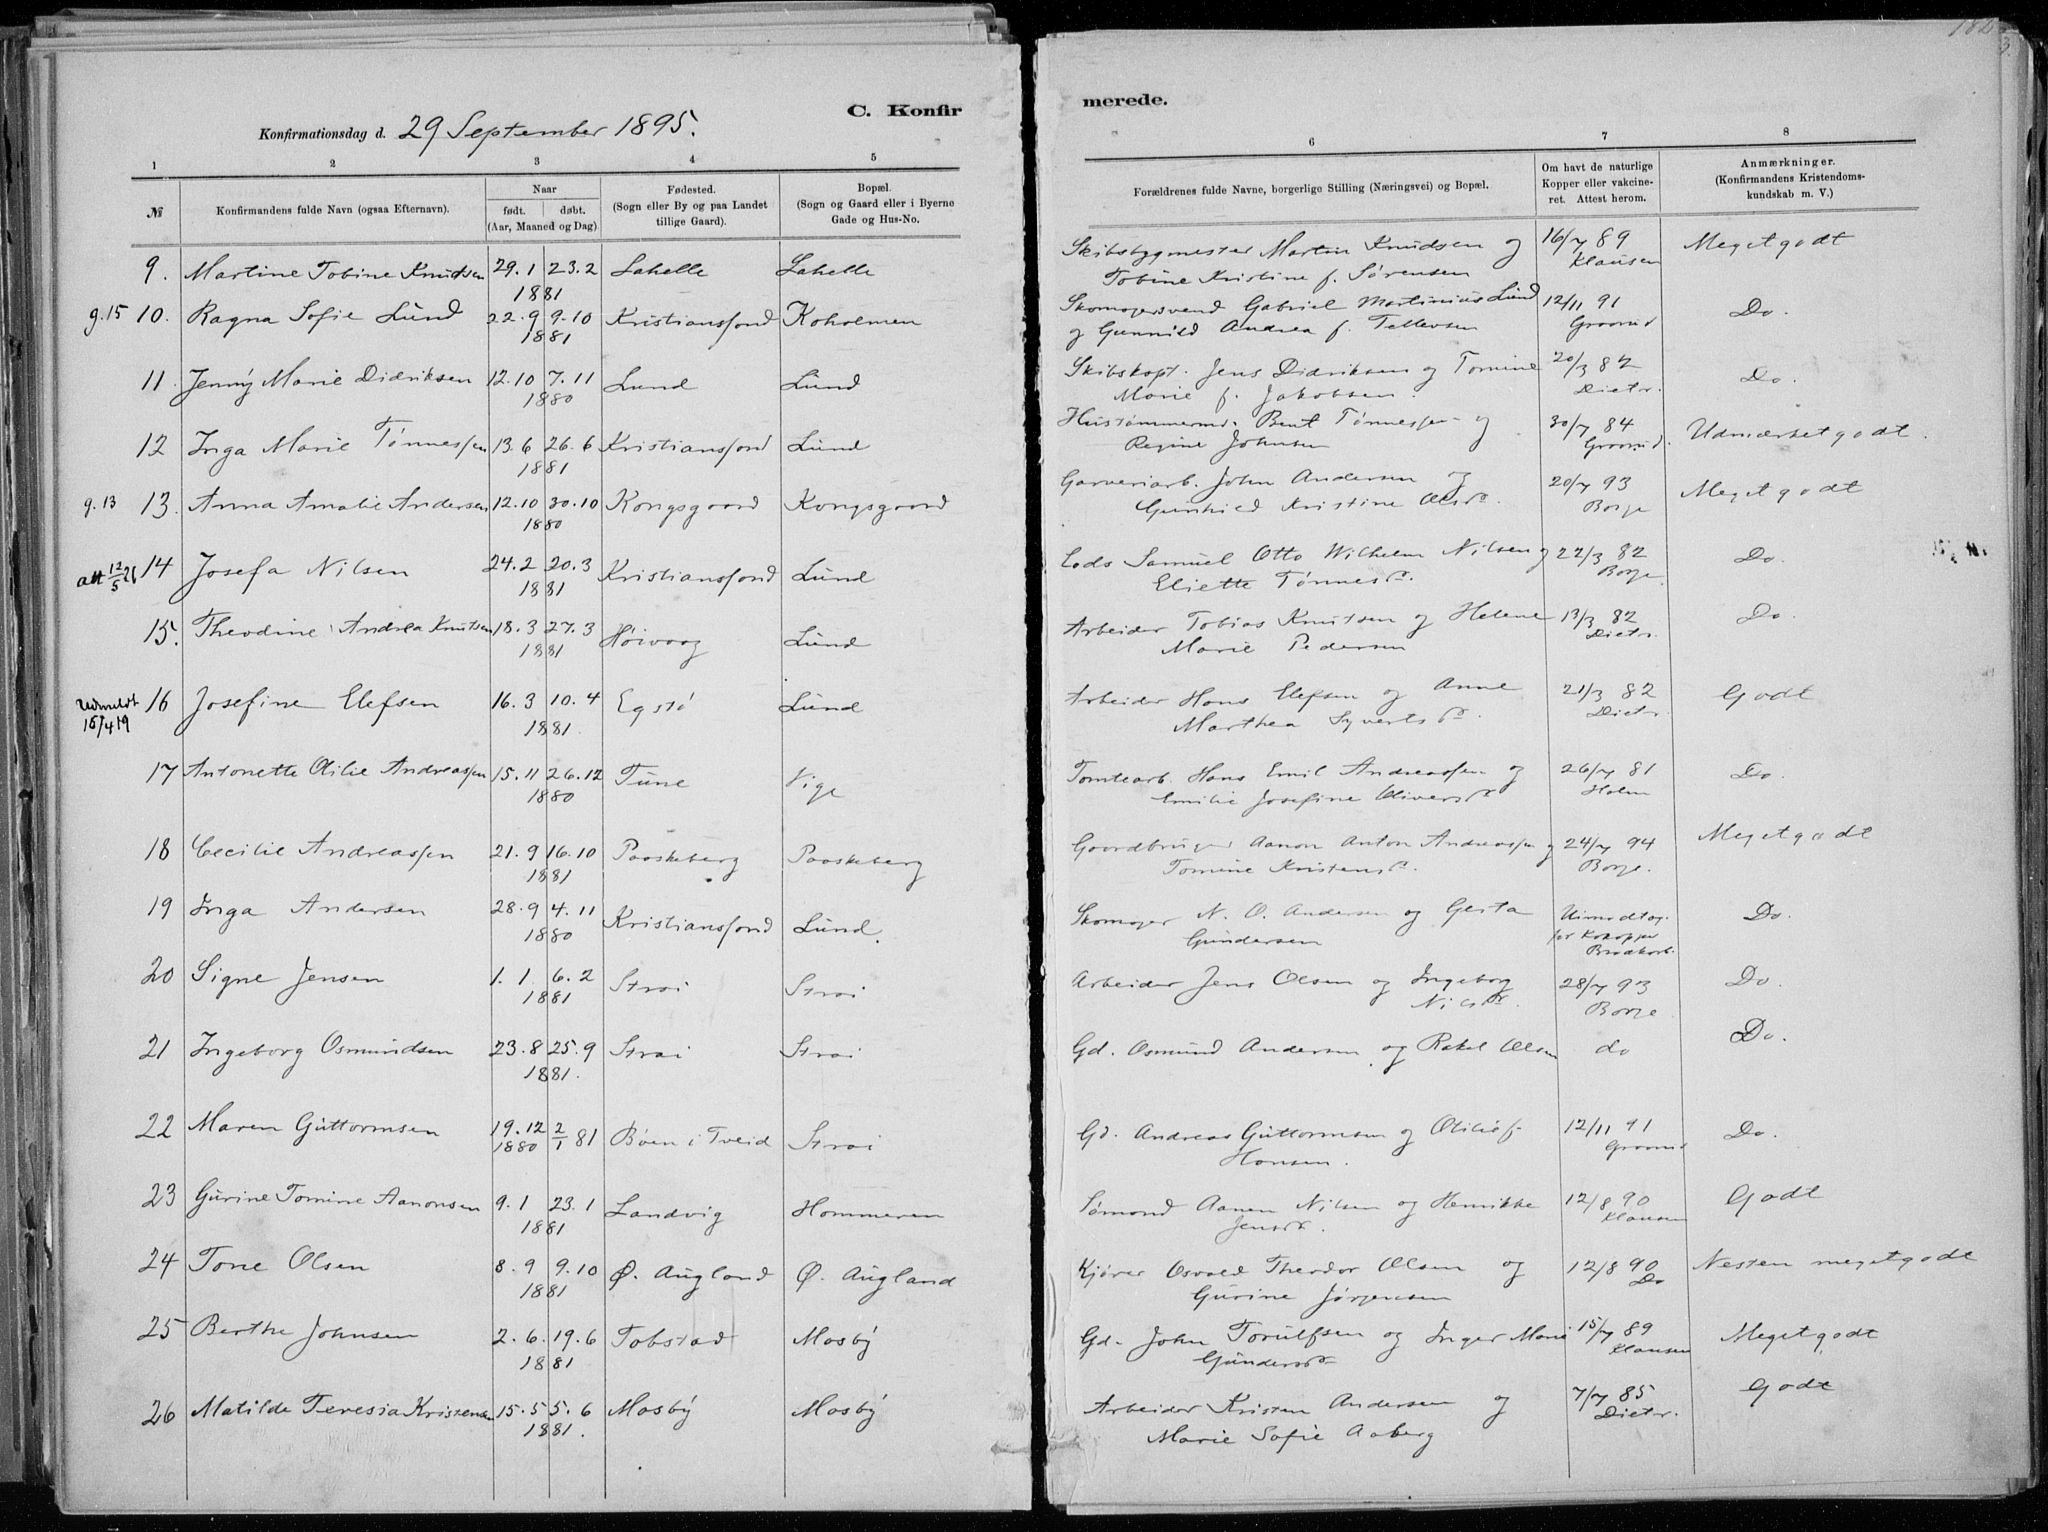 C. Konfirmerede.
Konfirmationsdag d. 29 September 1895.
1 2 3 4 5 6 7 8
№ Konfirmandens fulde Navn (ogsaa Efternavn). Naar født. døbt. (Aar, Maaned og Dag) Fødested. (Sogn eller By og paa Landet tillige Gaard). Bopæl. (Sogn og Gaard eller i Byerne Gade og Hus-No. Forældrenes fulde Navne, borgerlige Stilling (Næringsvei) og Bopæl. Om havt de naturlige Kopper eller vakcineret. Attest herom. Anmærkninger. (Konfirmandens Kristendomskundskab m. V.)
9. Martine Tobine Knudsen 29.1 23.2 1881 Lahelle Lahelle Skibsbygmester Martin Knudsen og Tobine Kristine f. Sørensen 16/7 89 Klausen Meget godt
g.15 10. Ragna Sofie Lund 22.9 9.10 1881 Kristianssand Koholmen Skomagersvend Gabriel Martinius Lund og Gunnild Andrea f. Tellevsen 12/11 91 Do.
11. Jenny Marie Didriksen 12.10 7.11 1880 Lund Lund Skibskapt. Jens Didriksen og Tomine Marie f. Jakobsen. 20/3 82 Dietr. Do.
12 Inga Marie Tønnessen 13.6 26.6 1881 Kristianssand Lund Hustømmerm. Bent Tønnessen og Regine Johnsen 30/7 84 Udmærket godt.
g.13 13. Anna Amalie Andersen 12.10 30.10 1880 Kongsgaard Kongsgaard Garveriarb. John Andersen og Gunhild Kristine Olsd. 20/7 93 Borge Meget godt
att 12/5 26 14 Josefa Nilsen 24.2 20.3 1881 Kristianssand Lund Lods Samuel Otto Wilhelm Nilsen og Eliette Tønnesd. 22/3 82 Borge Do.
15. Theodine Andrea Knutsen 18.3 27.3 1881 Høivaag Lund Arbeider Tobias Knutsen og Helene Marie Pedersen 13/3 82 Dietr. Do.
Udmeldt 15/4 19 16 Josefine Elefsen 16.3 10.4 1881. Egstø Lund Arbeider Hans Elefsen og Anne Marthea Syvertsd. 21/3 82 Dietr. Godt
17 Antonette Otilie Andreassen 15.11 26.12 1880 Tune Vige Tomtearb. Hans Emil Andreassen og Emilie Josefine Oliversd. 26/7 81 Holm Do.
18 Cecilie Andreassen 21.9 16.10 1881 Paaskeberg Paaskeberg Gaardbruger Aanon Anton Andreassen og Tomine Kristensd. 24/7 94 Borge. Meget godt
19 Inga Andersen 28.9 4.11 1880 Kristianssand Lund. Skomager N. O. Andersen og Gesta Gundersen Uimodtag. for Kokopper Do.
20 Signe Jensen 1.1 6.2 1881 Strai Strai Arbeider Jens Olsen og Ingeborg Nilsd. 28/7 93 Borge Do.
21 Ingeborg Osmundsen 23.8 25.9 1881. Strai Strai Gd. Osmund Andersen og Rakel Olsen do Do.
22 Maren Guttormsen 19.12 1880 2/1 81 Bøen i Tveid Strai Gd. Andreas Guttormsen og Otilie f. Hansen. 12/11 91 Do.
23 Gurine Tomine Aanonsen 9.1 23.1 1881 Landvig Hommeren Sømand Aanen Nilsen og Henrikke Jensd. 12/8 90 Klausen Godt
24 Tone Olsen 8.9 9.10 1881 Ø. Augland Ø. Augland Kjører Osvald Theodor Olsen og Gurine Jørgensen 12/8 90 Do Nesten meget godt
25 Berthe Johnsen 2.6. 19.6 1881 Tobstad Mosby Gd. John Torulfsen og Inger Marie Gundersd. 15/7 89 Klausen Meget godt
26 Matilde Teresia Kristensen 15.5 5.6 1881. Mosby Mosby Arbeider Kristen Andersen og Marie Sofie Aaberg 7/7 85 Dietr. Godt